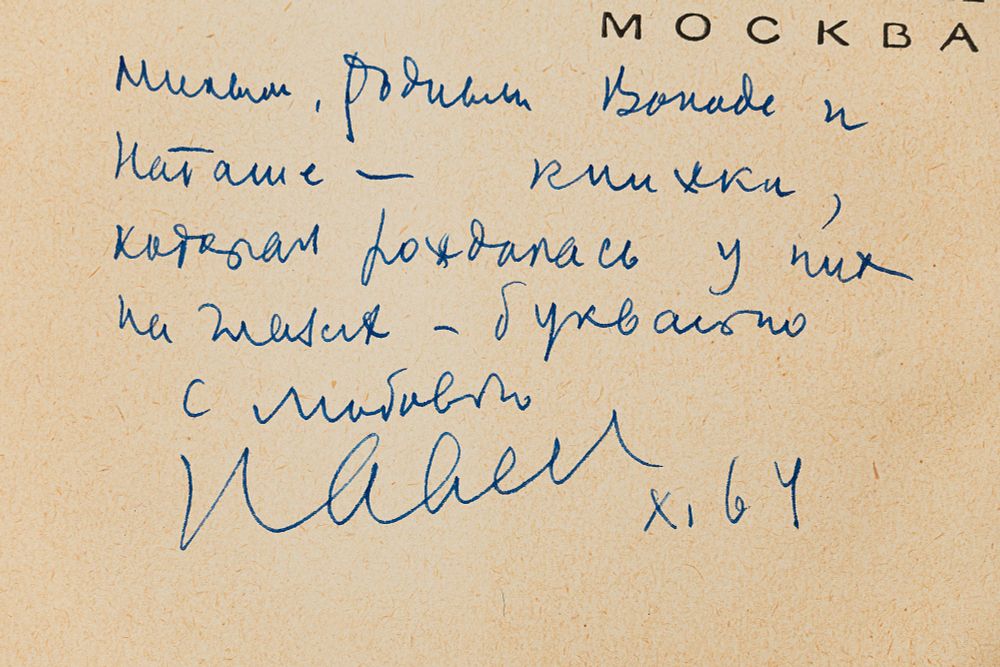 МОСКВА
Милым, родным Володе и
Наташе — книжки,
которая рождалась у них
на глазах – буквально
с любовью
Павел
XI, 64